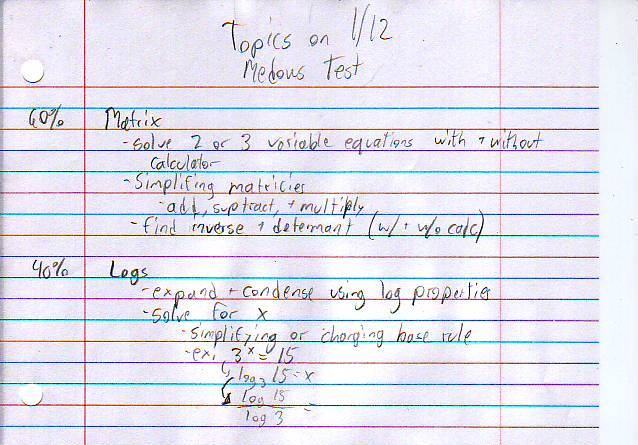 Topics on 1/12
Medous Test
60% Matrix
- solve 2 or 3 variable equations with + without
calculator
- Simplifing matricies
- add, suptract, + multiply
- find inverse + determant (w/ + w/o calc)
40% Logs
- expand + condense using log properties
- solve for x
- simplifying or changing base rule
- ex, 3ˣ = 15
log₃ 15 = x
log 15
log 3 =